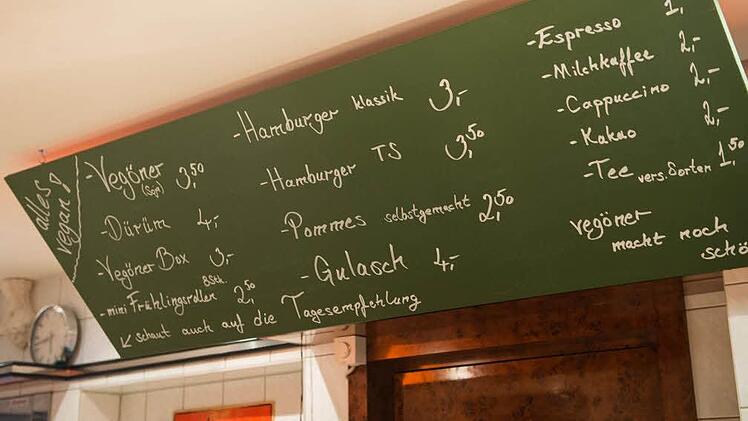 alles
vegan!
-Vegöner 3,50
(Soja)
-Dürüm 4,-
-Vegöner Box 3,-
-mini Frühlingsrollen 8Stk. 2,50
↙ schaut auch auf die Tagesempfehlung
-Hamburger klassik 3,-
-Hamburger TS 3,50
-Pommes selbstgemacht 2,50
-Gulasch 4,-
-Espresso 1,
-Milchkaffee 2,-
-Cappuccino 2,-
-Kakao 2,-
-Tee vers. Sorten 1,50
vegöner
macht noch
schö